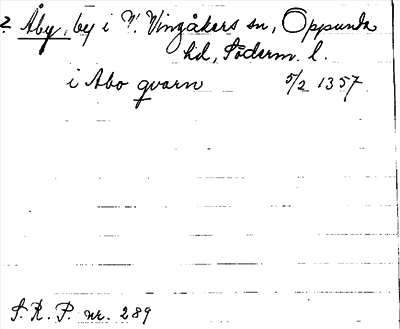 2 Åby, by i V. Vingåkers sn, Oppunda
hd, Söderm. l.
i Abo qvarn 5/2 1357
S. R. P. nr. 289